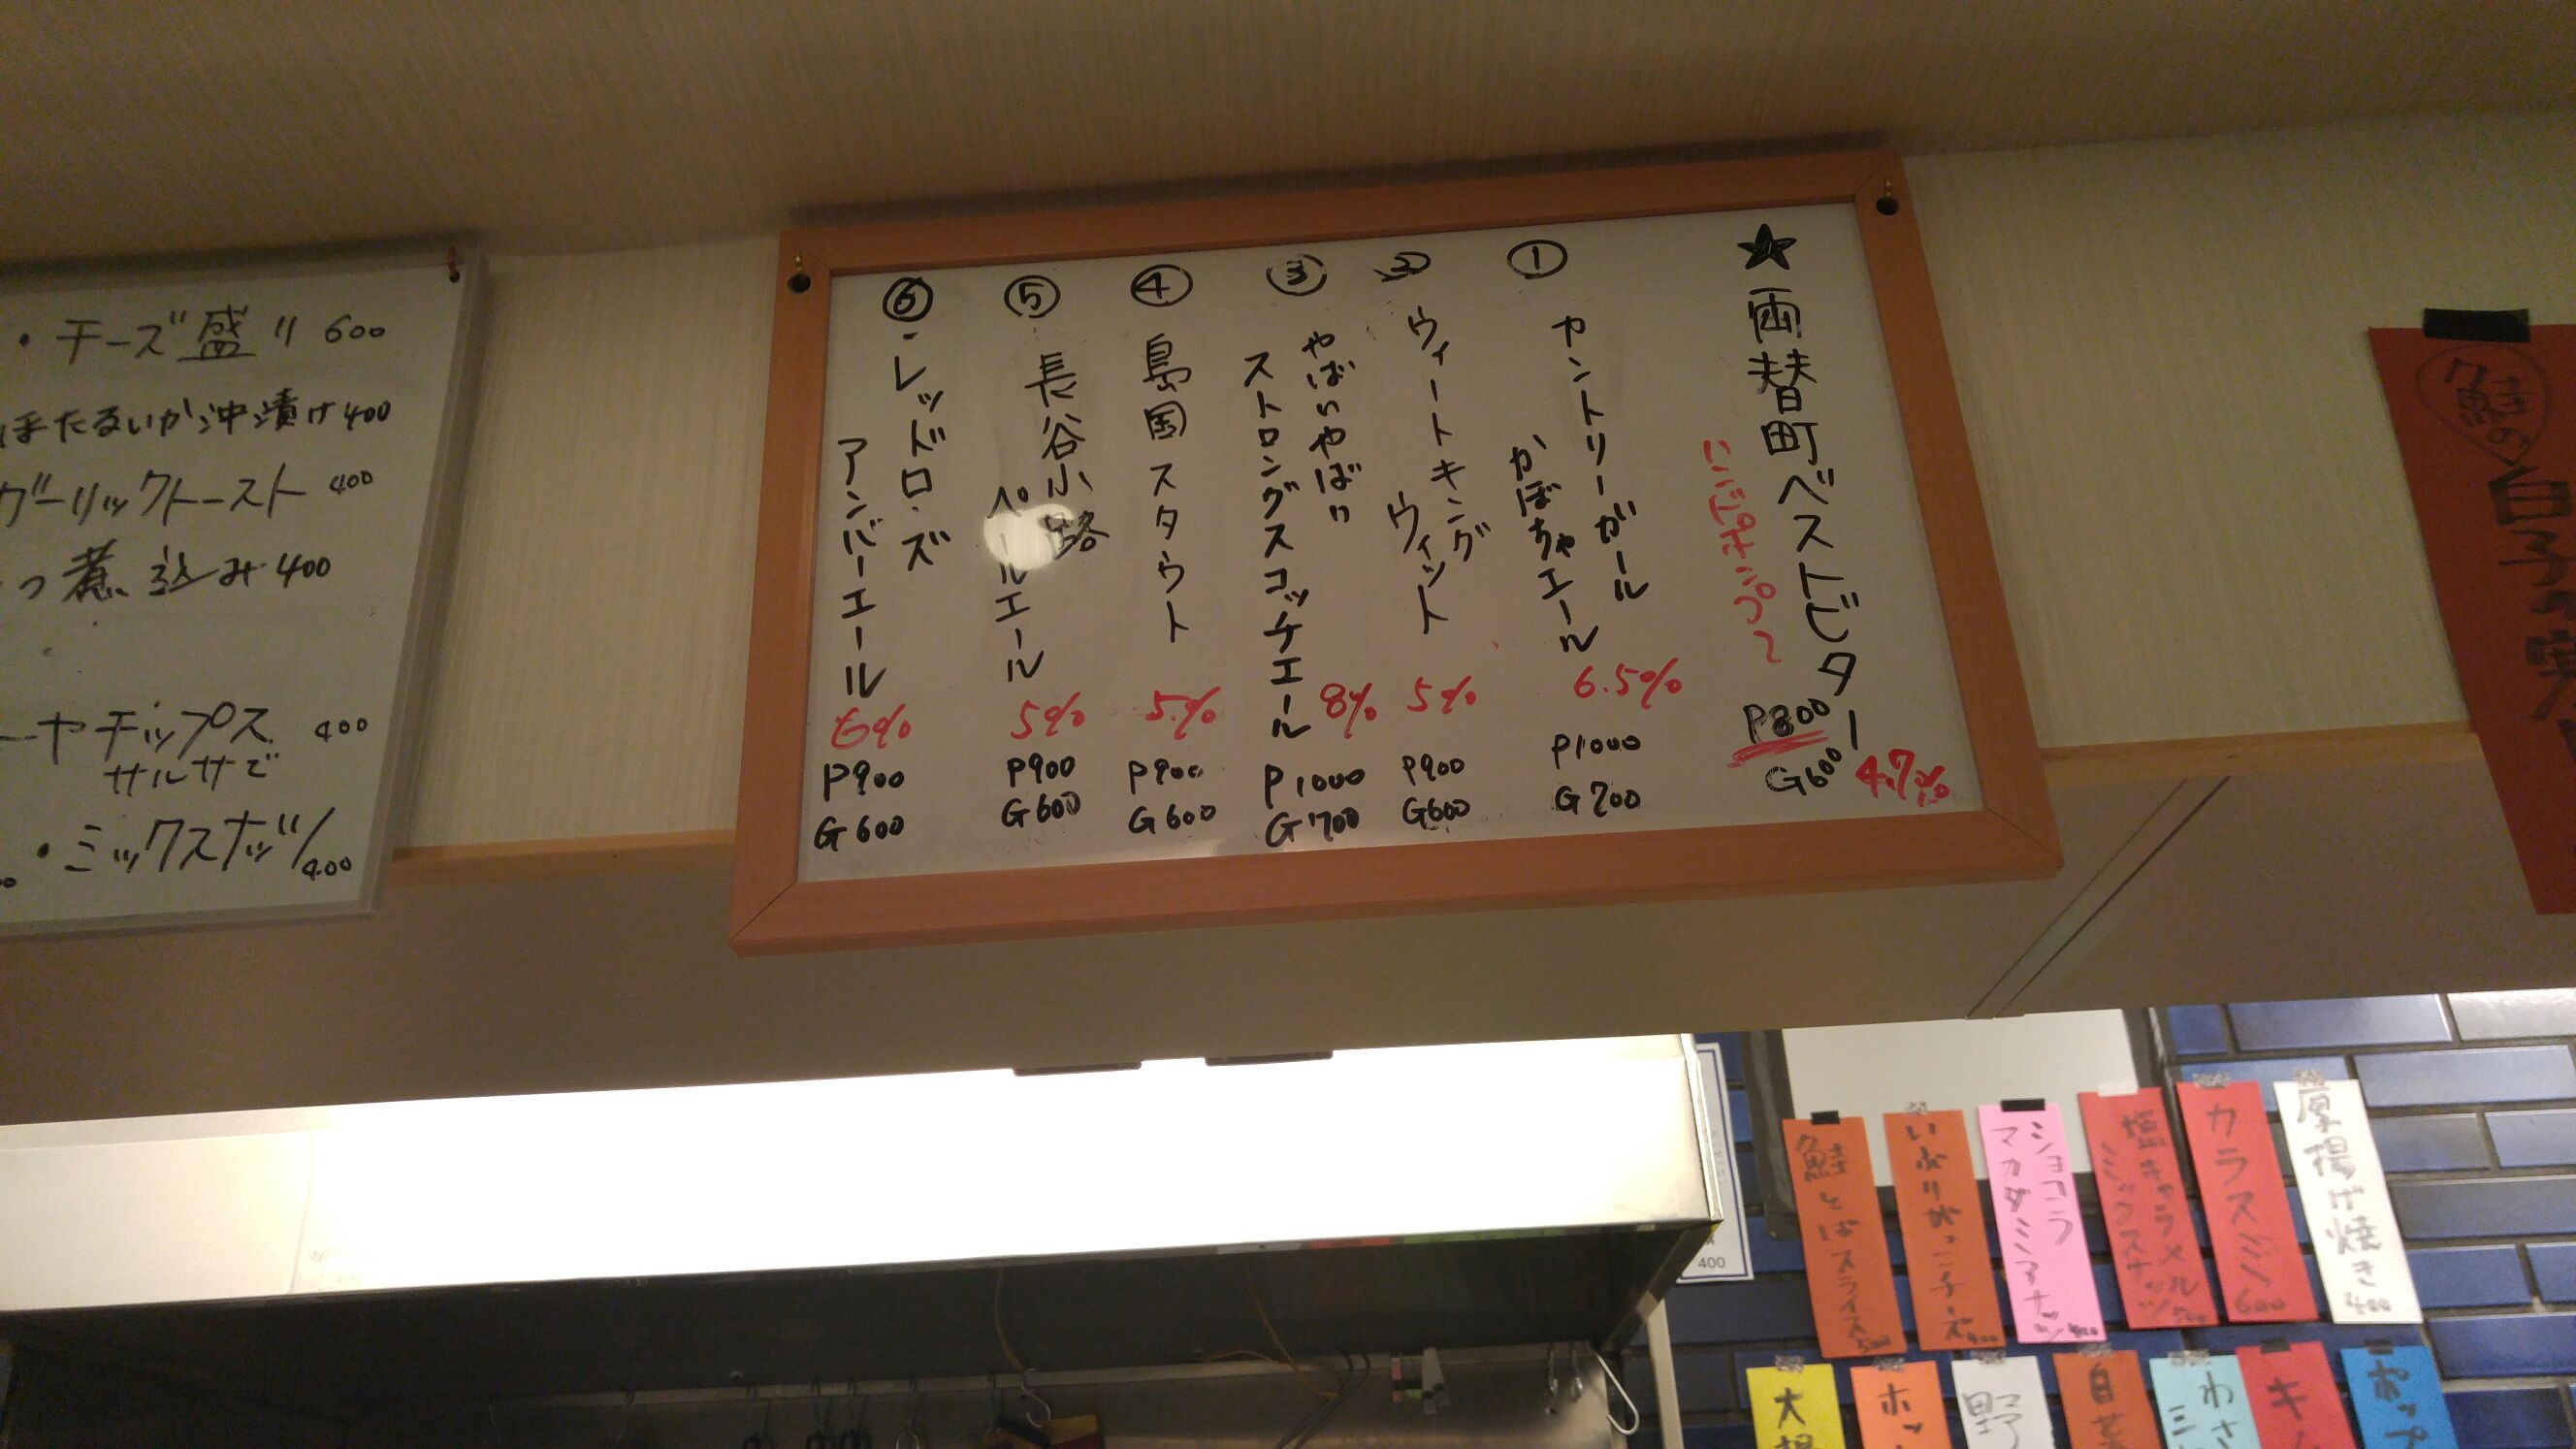 ★ 両替町ベストビター
P800
G600 4.7%
① カントリーガール
かぼちゃエール
6.5%
P1000
G700
② ウィートキング
ウィット
5%
P900
G600
③ やばいやばい
ストロングスコッチエール
8%
P1000
G700
④ 島国スタウト
5%
P900
G600
⑤ 長谷小路
ペールエール
5%
P900
G600
⑥ ・レッドローズ
アンバーエール
6%
P900
G600
・チーズ盛り 600
ほたるいか沖漬け 400
ガーリックトースト 400
つ煮込み 400
ーヤチップス 400
サルサで
・ミックスナッツ/400
鮭の
白子の
厚揚げ焼き 400
カラスミ 600
塩キャラメル
ミックスナッツ 500
ショコラ
マカダミアナッツ 400
いぶりがっこチーズ 400
鮭とばスライス 500
400
ポップ
キ
わさ
三
白菜
野
ホッ
大根